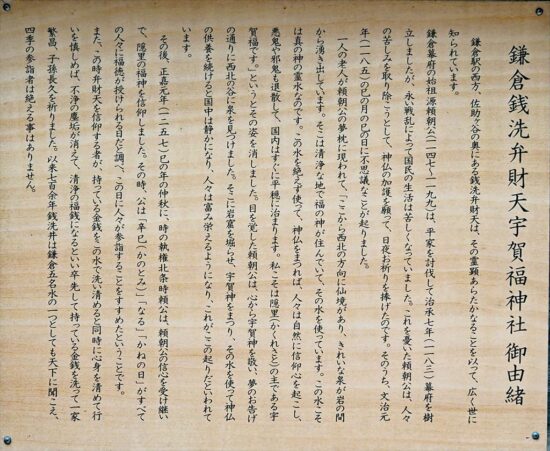 鎌倉銭洗弁財天宇賀福神社 御由緒
鎌倉駅の西方、佐助ヶ谷の奥にある銭洗弁財天は、その霊顕あらたかなることを以って、広く世に
知られています。
鎌倉幕府の始祖源頼朝公(一一四七〜一一九九)は、平家を討伐して治承七年(一一八三)幕府を樹
立しましたが、永い戦乱によって国民の生活は苦しくなっていました。これを憂いた頼朝公は、人々
の苦しみを取り除こうとして、神仏の加護を願って、日夜お祈りを捧げたのです。そのうち、文治元
年(一一八五)の巳の月の巳の日に不思議なことが起りました。
一人の老人が頼朝公の夢枕に現われて、「ここから西北の方向に仙境があり、きれいな泉が岩の間
から湧き出しています。そこは清浄な地で福の神が住んでいて、その水を使っています。この水こそ
は真の神の霊水なのです。この水を絶えず使って、神仏をまつれば、人々は自然に信仰心を起こし、
悪鬼や邪鬼も退散して、国内はすぐに平穏に治まります。私こそは隠里(かくれざと)の主である宇
賀福です。」というとその姿を消しました。目を覚した頼朝公は、心から宇賀神を敬い、夢のお告げ
の通りに西北の谷に泉を見つけました。そこに岩窟を掘らせ、宇賀神をまつり、その水を使って神仏
の供養を続けると国中は静かになり、人々は富み栄えるようになり、これが、ここの起りだといわれて
います。
その後、正嘉元年(一二五七)巳の年の仲秋に、時の執権北条時頼公は、頼朝公の信心を受け継い
で、隠里の福神を信仰しました。その時、公は「辛巳(かのとみ)」「なる」「かねの日」がすべて
の人々に福徳が授けられる日だと調べ、この日に人々が参詣することをすすめたということです。
また、この時弁財天を信仰する者が、持っている金銭をこの水で洗い清めると同時に心身を清めて行
いを慎しめば、不浄の塵垢が消えて、清浄の福銭になるといい率先して持っている金銭を洗って一家
繁昌、子孫長久を祈りました。以来七百余年銭洗井は鎌倉五名水の一つとしても天下に聞こえ、
四季の参詣者は絶える事はありません。